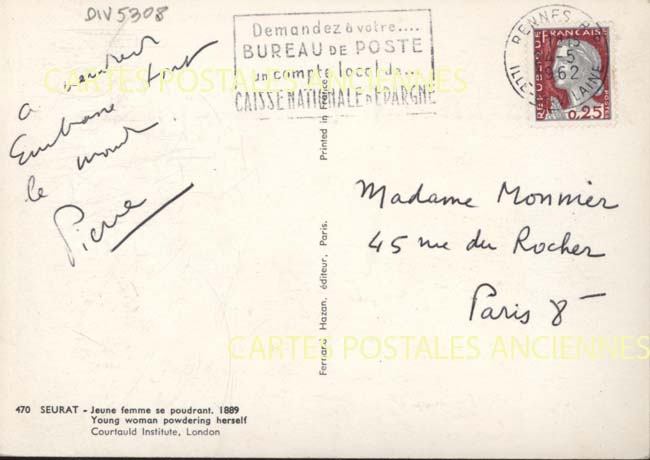 DIV5308
Demandez à votre....
BUREAU DE POSTE
un compte local de
CAISSE NATIONALE D'EPARGNE
RENNES R.P.
5
1962
ILLE- -ET- VILAINE
REPUBLIQUE FRANCAISE
POSTES
0,25
a vendredi
Embrasse tout
le monde.
Pierre
Printed in France.
Fernand Hazan, éditeur, Paris.
Madame Monnier
45 rue du Rocher
Paris 8-
CARTES POSTALES ANCIENNES
CARTES POSTALES ANCIENNES
470 SEURAT - Jeune femme se poudrant. 1889
Young woman powdering herself
Courtauld Institute, London